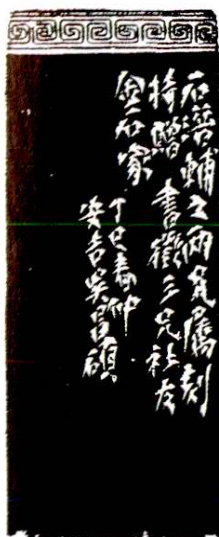 石潛輔之兩兄屬刻
持贈書徵三兄社友
金石家
丁巳春仲
安吉吳昌碩